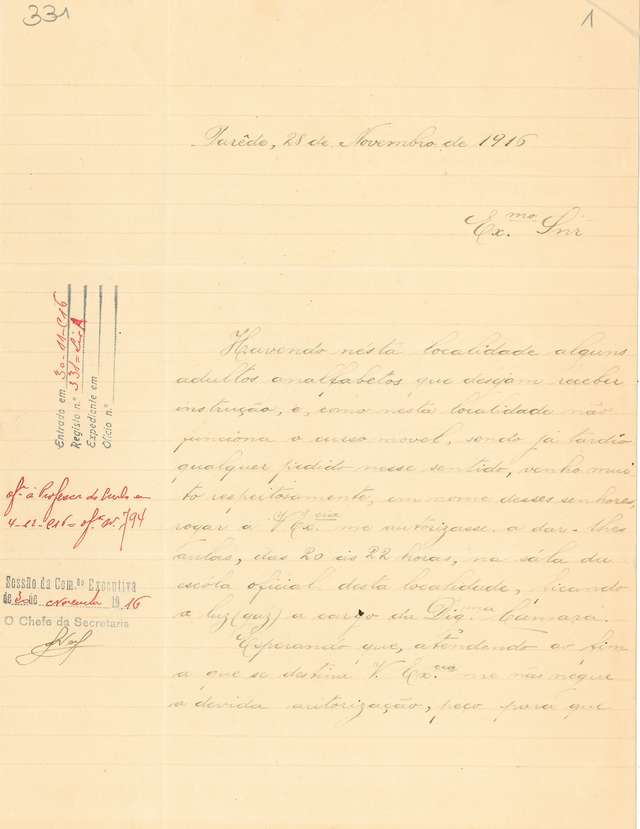 331
1
Parêde, 28 de Novembro de 1916
Ex.mo Snr
Havendo nésta localidade alguns
adultos analfabetos que desejam receber
instrução, e, como nésta localidade não
funciona o curso movel, sendo já tardio
qualquer pedido nesse sentido, venho mui-
to respeitosamente, em nome desses senhores,
rogar a V. Ex.cia me autorizasse a dar-lhes
aulas, das 20 ás 22 horas, na sála da
escóla oficial desta localidade, ficando
a luz (gaz) a cargo da Dig.ma Câmara.
Esperando que, atendendo ao fim
a que se destina V. Ex.cia me não negue
a devida autorização, peço para que
Entrado em 30-11-916
Registo n.º 331=
Expediente em
Oficio n.º
of.º á Professor do
4-12-916 - of.º nº 794
Sessão da Com.ão Executiva
de 30 de Novembro 1916
O Chefe da Secretaria